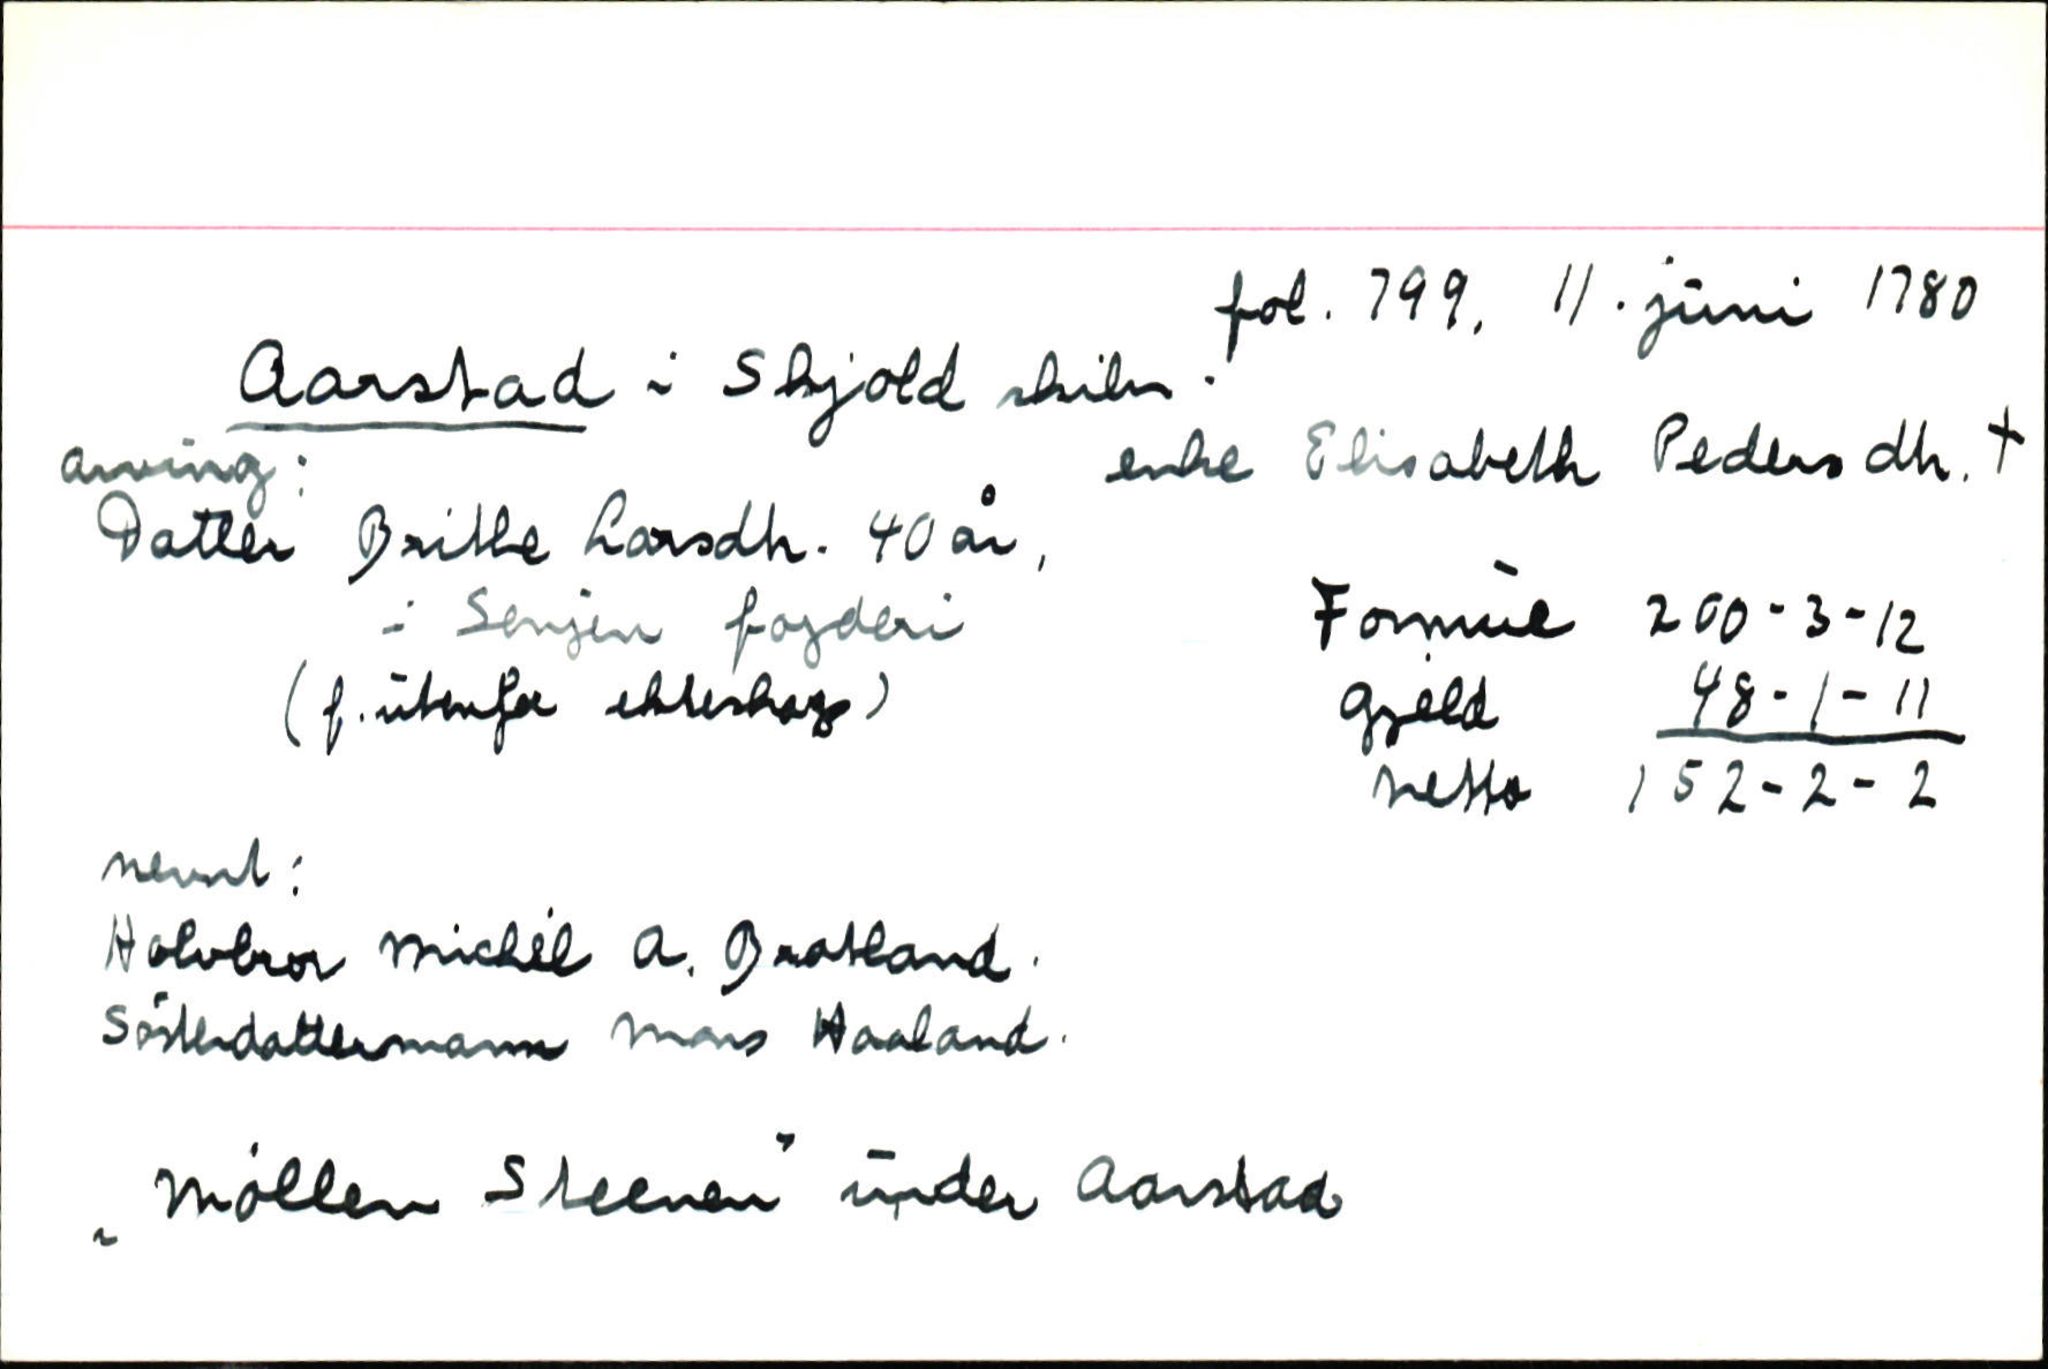 fol. 799, 11. juni 1780
Aarstad i Skjold skibr.
enke Elisabeth Pedersdtr. †
arving:
Datter Brithe Larsdtr. 40 år,
i Senjen fogderi
(f. utenfor ekteskap)
Formue 200-3-12
Gjeld 48-1-11
Netto 152-2-2
nevnt:
Halvbror Michel A. Bratland.
Søsterdattermann Mons Haaland.
"Møllen Steenen" under Aarstad